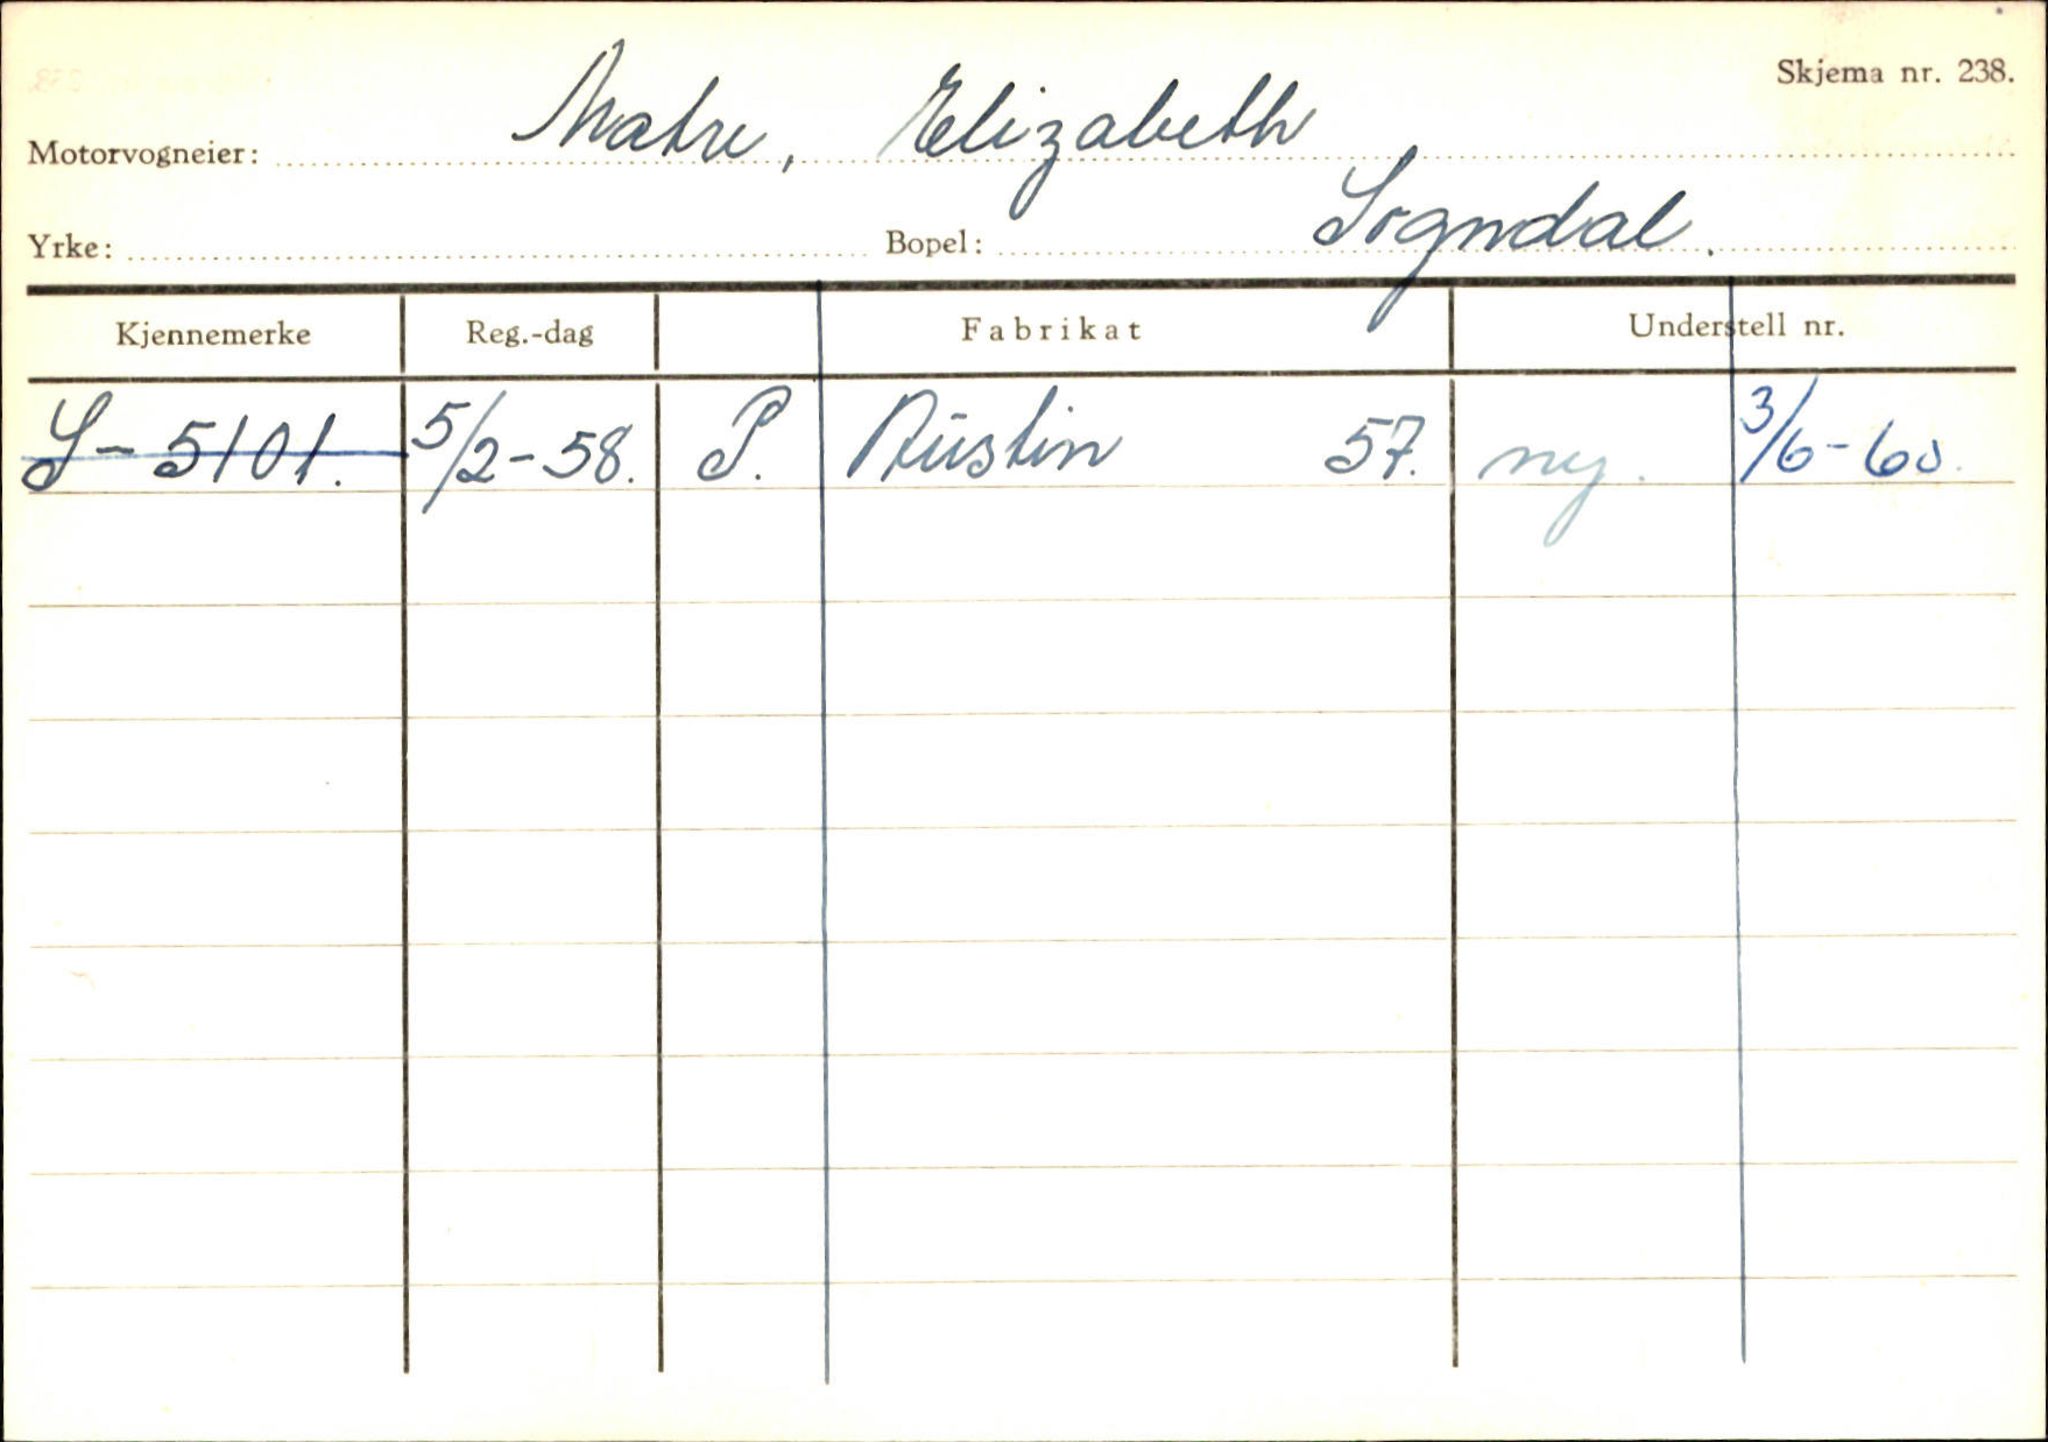 Skjema nr. 238.
Motorvogneier: Matre, Elizabeth
Yrke: Bopel: Sogndal.
Kjennemerke Reg.-dag Fabrikat Understell nr.
S-5101. 5/2-58. P. Austin 57. ny. 3/6-60.